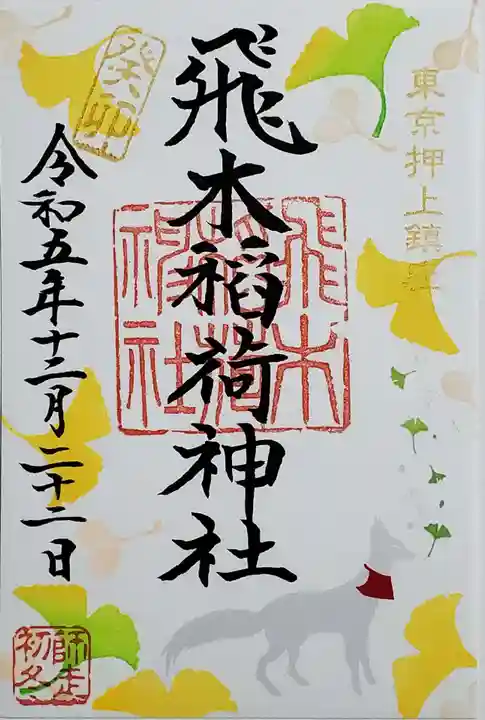 東京押上鎮座
飛木稲荷神社
飛木稲荷神社
癸卯
令和五年十二月二十二日
師走
初冬